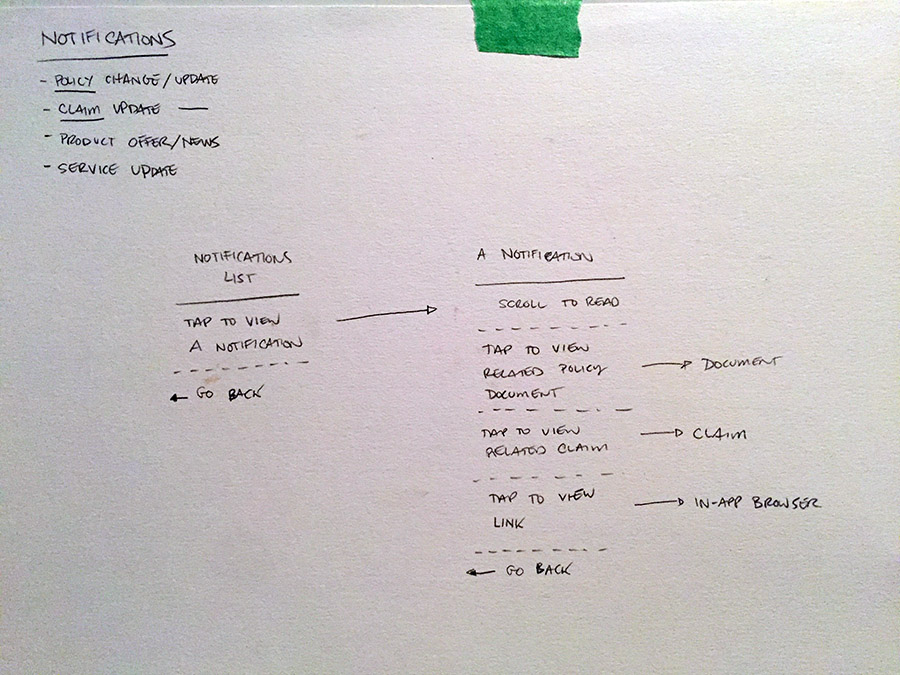 NOTIFICATIONS
- POLICY CHANGE/UPDATE
- CLAIM UPDATE —
- PRODUCT OFFER/NEWS
- SERVICE UPDATE
NOTIFICATIONS
LIST
TAP TO VIEW
A NOTIFICATION
← GO BACK
A NOTIFICATION
SCROLL TO READ
TAP TO VIEW
RELATED POLICY
DOCUMENT
→ DOCUMENT
TAP TO VIEW
RELATED CLAIM
→ CLAIM
TAP TO VIEW
LINK
→ IN-APP BROWSER
← GO BACK